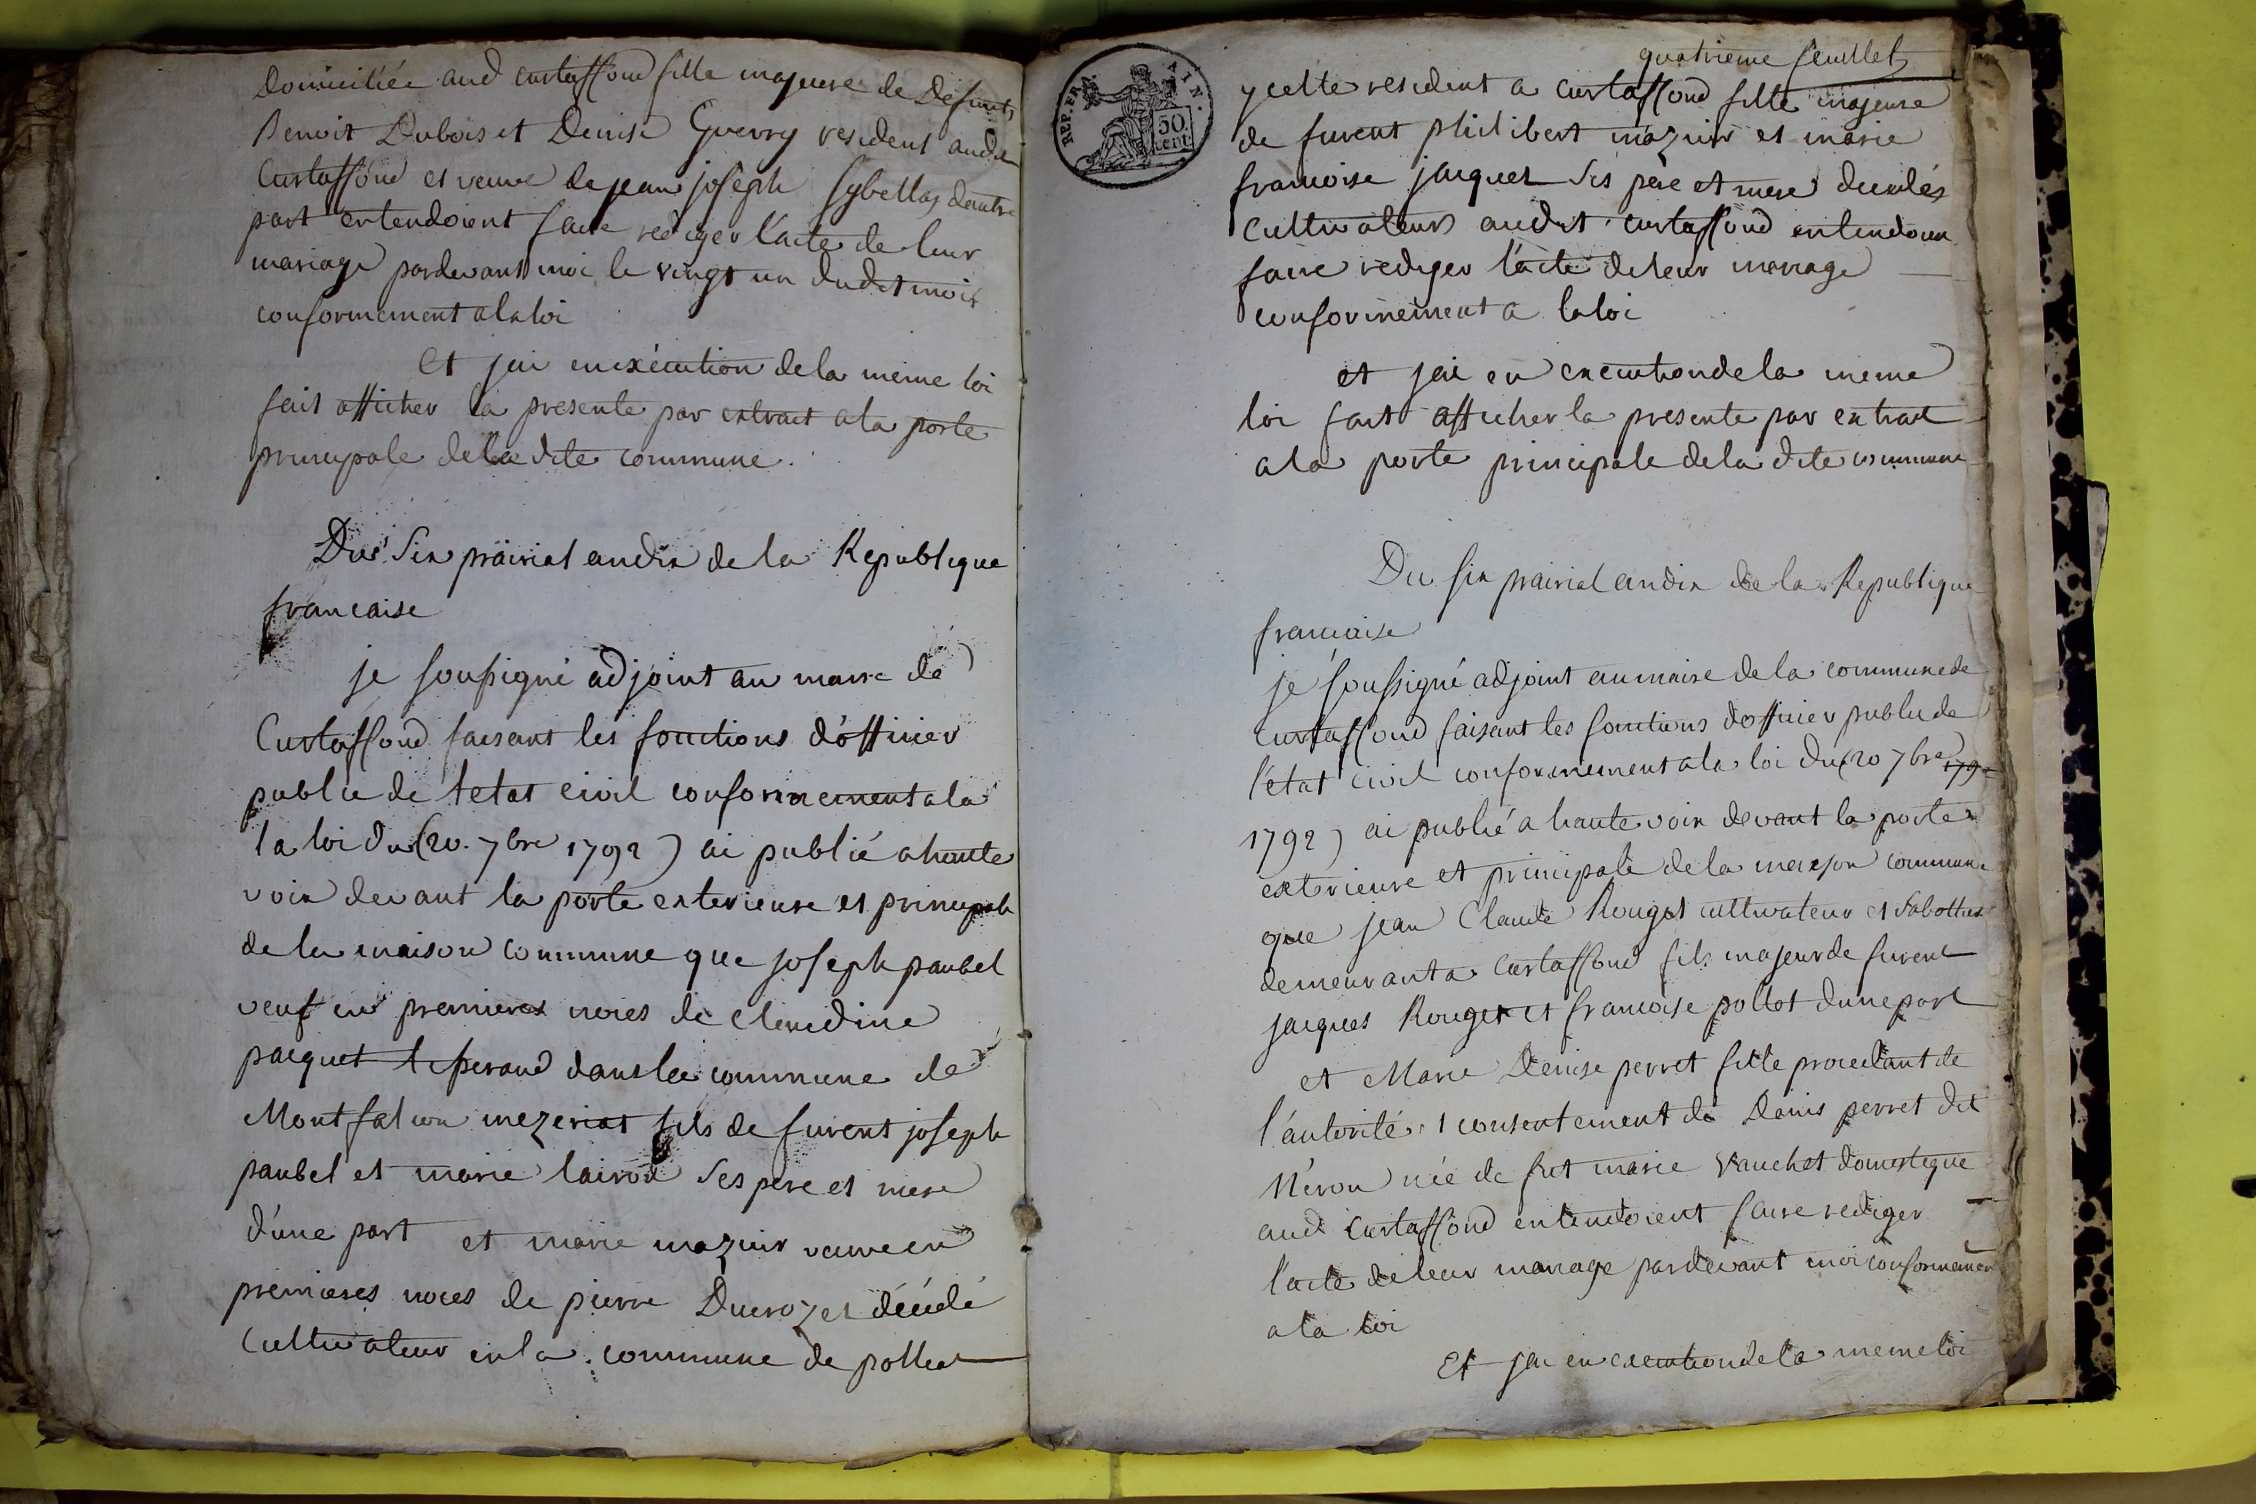 Domiciliée aud curtaffond fille majeure de Defunts
Benoit Dubois et Denise Guerry resident audit
Curtaffond et veuve de jean joseph Sybellas dautre
part entendoient faire rediger l'acte de leur
mariage pardevant moi le vingt un dudit mois
conformement a la loi
Et jai en exécution de la meme loi
fait afficher la presente par extrait a la porte
principale de la dite commune.
Du Six prairial an dix de la Republique
francaise
je soussigné adjoint au maire de
Curtaffond faisant les fonctions d'officier
public de l'etat civil conformement a la
la loi du (20. 7bre 1792) ai publié a haute
voix devant la porte exterieure et principale
de la maison commune que joseph paubel
veuf en premieres noces de claudine
paquet dans la commune de
Montfalcon mezeriat fils de furent joseph
paubel et marie lairod ses pere et mere
d'une part et marie mazuir veuve en
premieres noces de pierre Ducrozet décédé
Cultivateur en la commune de polliat
quatrieme feuillet
REP. FRA.
50
cent
ycelle resident a curtaffond fille majeure
de furent philibert mazuir et marie
francoise jacquet ses pere et mere decedés
cultivateurs audit curtaffond entendoient
faire rediger l'acte de leur mariage
conformement a la loi
et jai en execution de la meme
loi fait afficher la presente par extrait
a la porte principale de la dite commune
Du six prairial an dix de la Republique
francaise
je soussigné adjoint au maire de la commune de
curtaffond faisant les fonctions d'officier public de
l'état civil conformement a la loi du (20 7bre 179
1792) ai publié a haute voix devant la porte
exterieure et principale de la maison commune
que jean Claude Rouget cultivateur et sabottier
demeurant a curtaffond fils majeur de furent
jacques Rouget et francoise pollot d'une part
et Marie Denise perret fille procedant de
l'autorité et consentement de Denis perret dit
Néron née de fut marie vauchet domestique
aud curtaffond entendoient faire rediger
l'acte de leur mariage pardevant moi conformement
a la loi
Et jai en execution de la meme loi